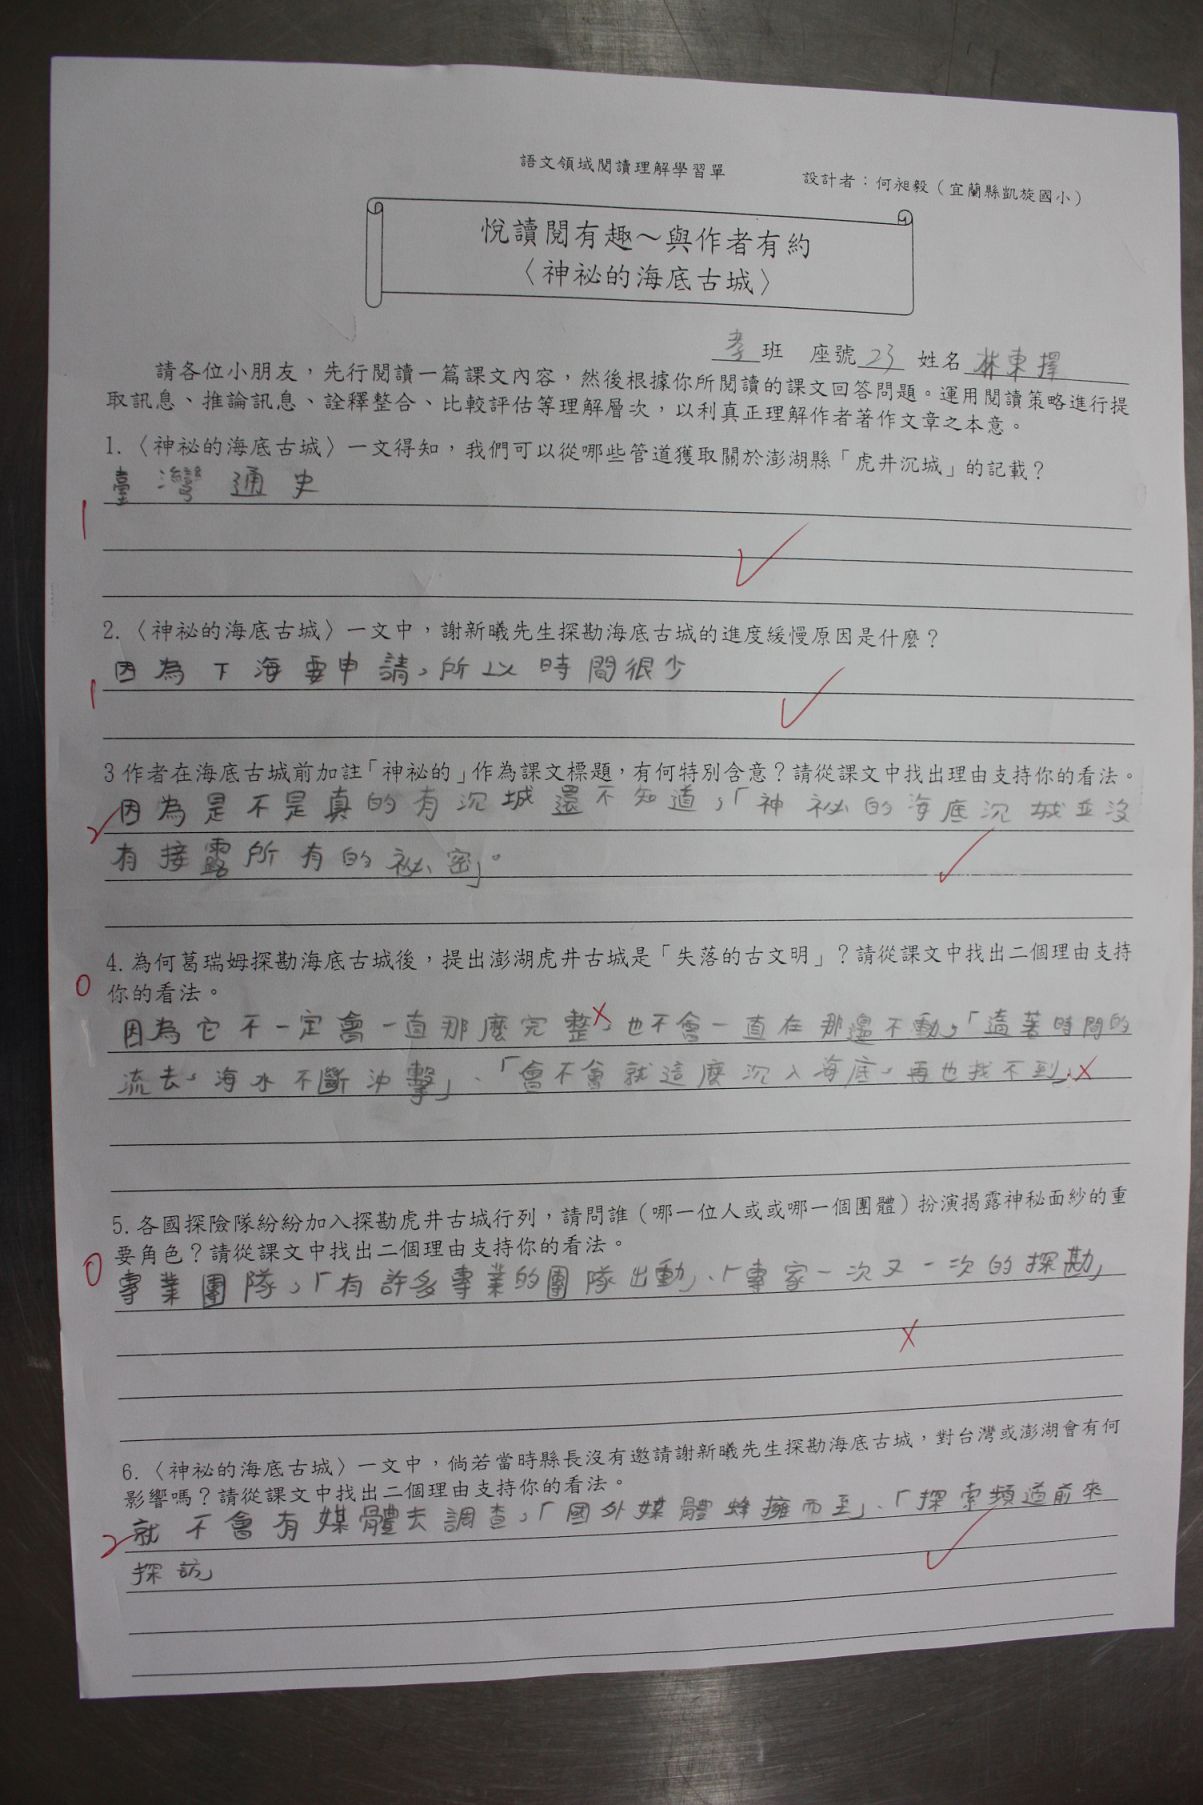 語文領域閱讀理解學習單
設計者：何昶毅（宜蘭縣凱旋國小）
悅讀閱有趣～與作者有約
〈神祕的海底古城〉
孝班 座號23 姓名林東擇
請各位小朋友，先行閱讀一篇課文內容，然後根據你所閱讀的課文回答問題。運用閱讀策略進行提
取訊息、推論訊息、詮釋整合、比較評估等理解層次，以利真正理解作者著作文章之本意。
1.〈神祕的海底古城〉一文得知，我們可以從哪些管道獲取關於澎湖縣「虎井沉城」的記載？
臺灣通史
1
2.〈神祕的海底古城〉一文中，謝新曦先生探勘海底古城的進度緩慢原因是什麼？
因為下海要申請，所以時間很少
1
3 作者在海底古城前加註「神祕的」作為課文標題，有何特別含意？請從課文中找出理由支持你的看法。
因為是不是真的有沉城還不知道，「神祕的海底沉城並沒
2
有接露所有的祕密」。
4. 為何葛瑞姆探勘海底古城後，提出澎湖虎井古城是「失落的古文明」？請從課文中找出二個理由支持
0
你的看法。
因為它不一定會一直那麼完整，也不會一直在那邊不動，「適著時間的
流去，海水不斷沖擊」、「會不會就這麼沉入海底，再也找不到」
5. 各國探險隊紛紛加入探勘虎井古城行列，請問誰（哪一位人或或哪一個團體）扮演揭露神秘面紗的重
要角色？請從課文中找出二個理由支持你的看法。
0
專業團隊，「有許多專業的團隊出動」、「專家一次又一次的探勘」
6.〈神祕的海底古城〉一文中，倘若當時縣長沒有邀請謝新曦先生探勘海底古城，對台灣或澎湖會有何
影響嗎？請從課文中找出二個理由支持你的看法。
就不會有媒體去調查，「國外媒體蜂擁而至」、「探索頻道前來
2
探訪」